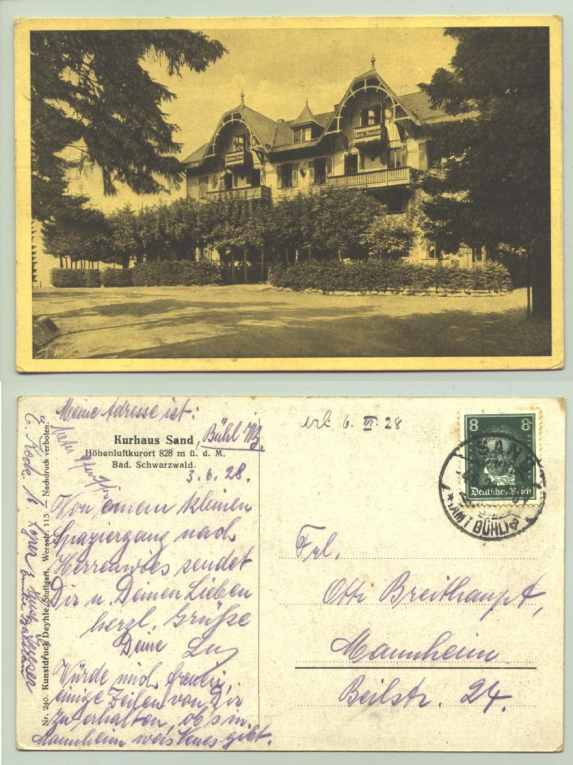 Meine Adresse ist:
Kurhaus Sand, Bühl
Höhenluftkurort 828 m ü. d. M.
Bad. Schwarzwald.
3. 6. 28.
Von einem kleinen
Spaziergang nach
Herrenwies sendet
Dir u. Deinen Lieben
herzl. Grüße
Deine
Würde mich freuen,
einige Zeilen von Dir
zu erhalten, ob's in
Mannheim was Neues gibt.
Nr. 240. Kunstdruck Deyhle, Stuttgart, Werastr. 113 — Nachdruck verboten.
6. VI. 28
8 8
Deutsches Reich
SAND
(AMT BÜHL)
Frl.
Otti Breithaupt,
Mannheim
Beilstr. 24.